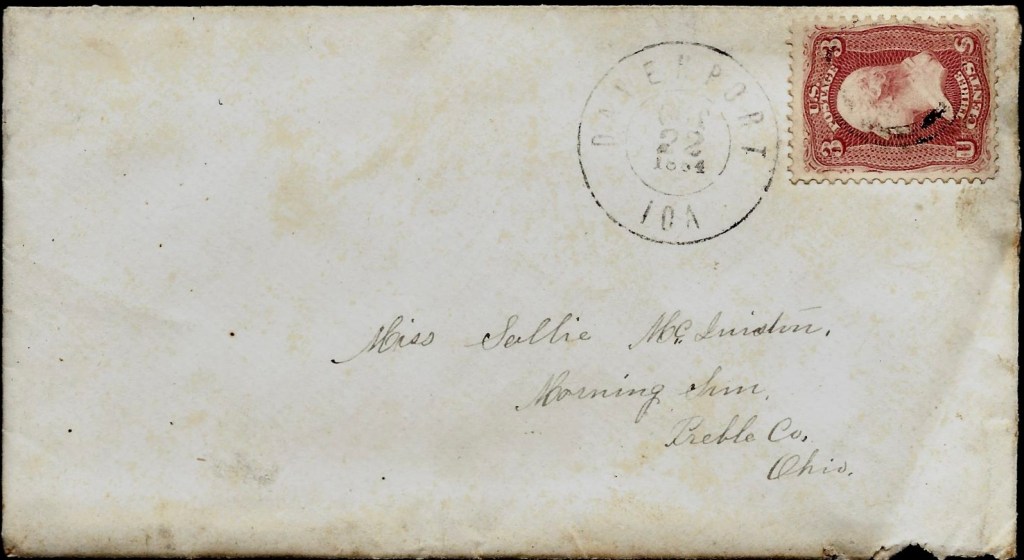 DAVENPORT
22
1864
IOA
U.S. POSTAGE
THREE CENTS
3
3
U
S
Miss Sallie McQuiston,
Morning Sun,
Preble Co,
Ohio.